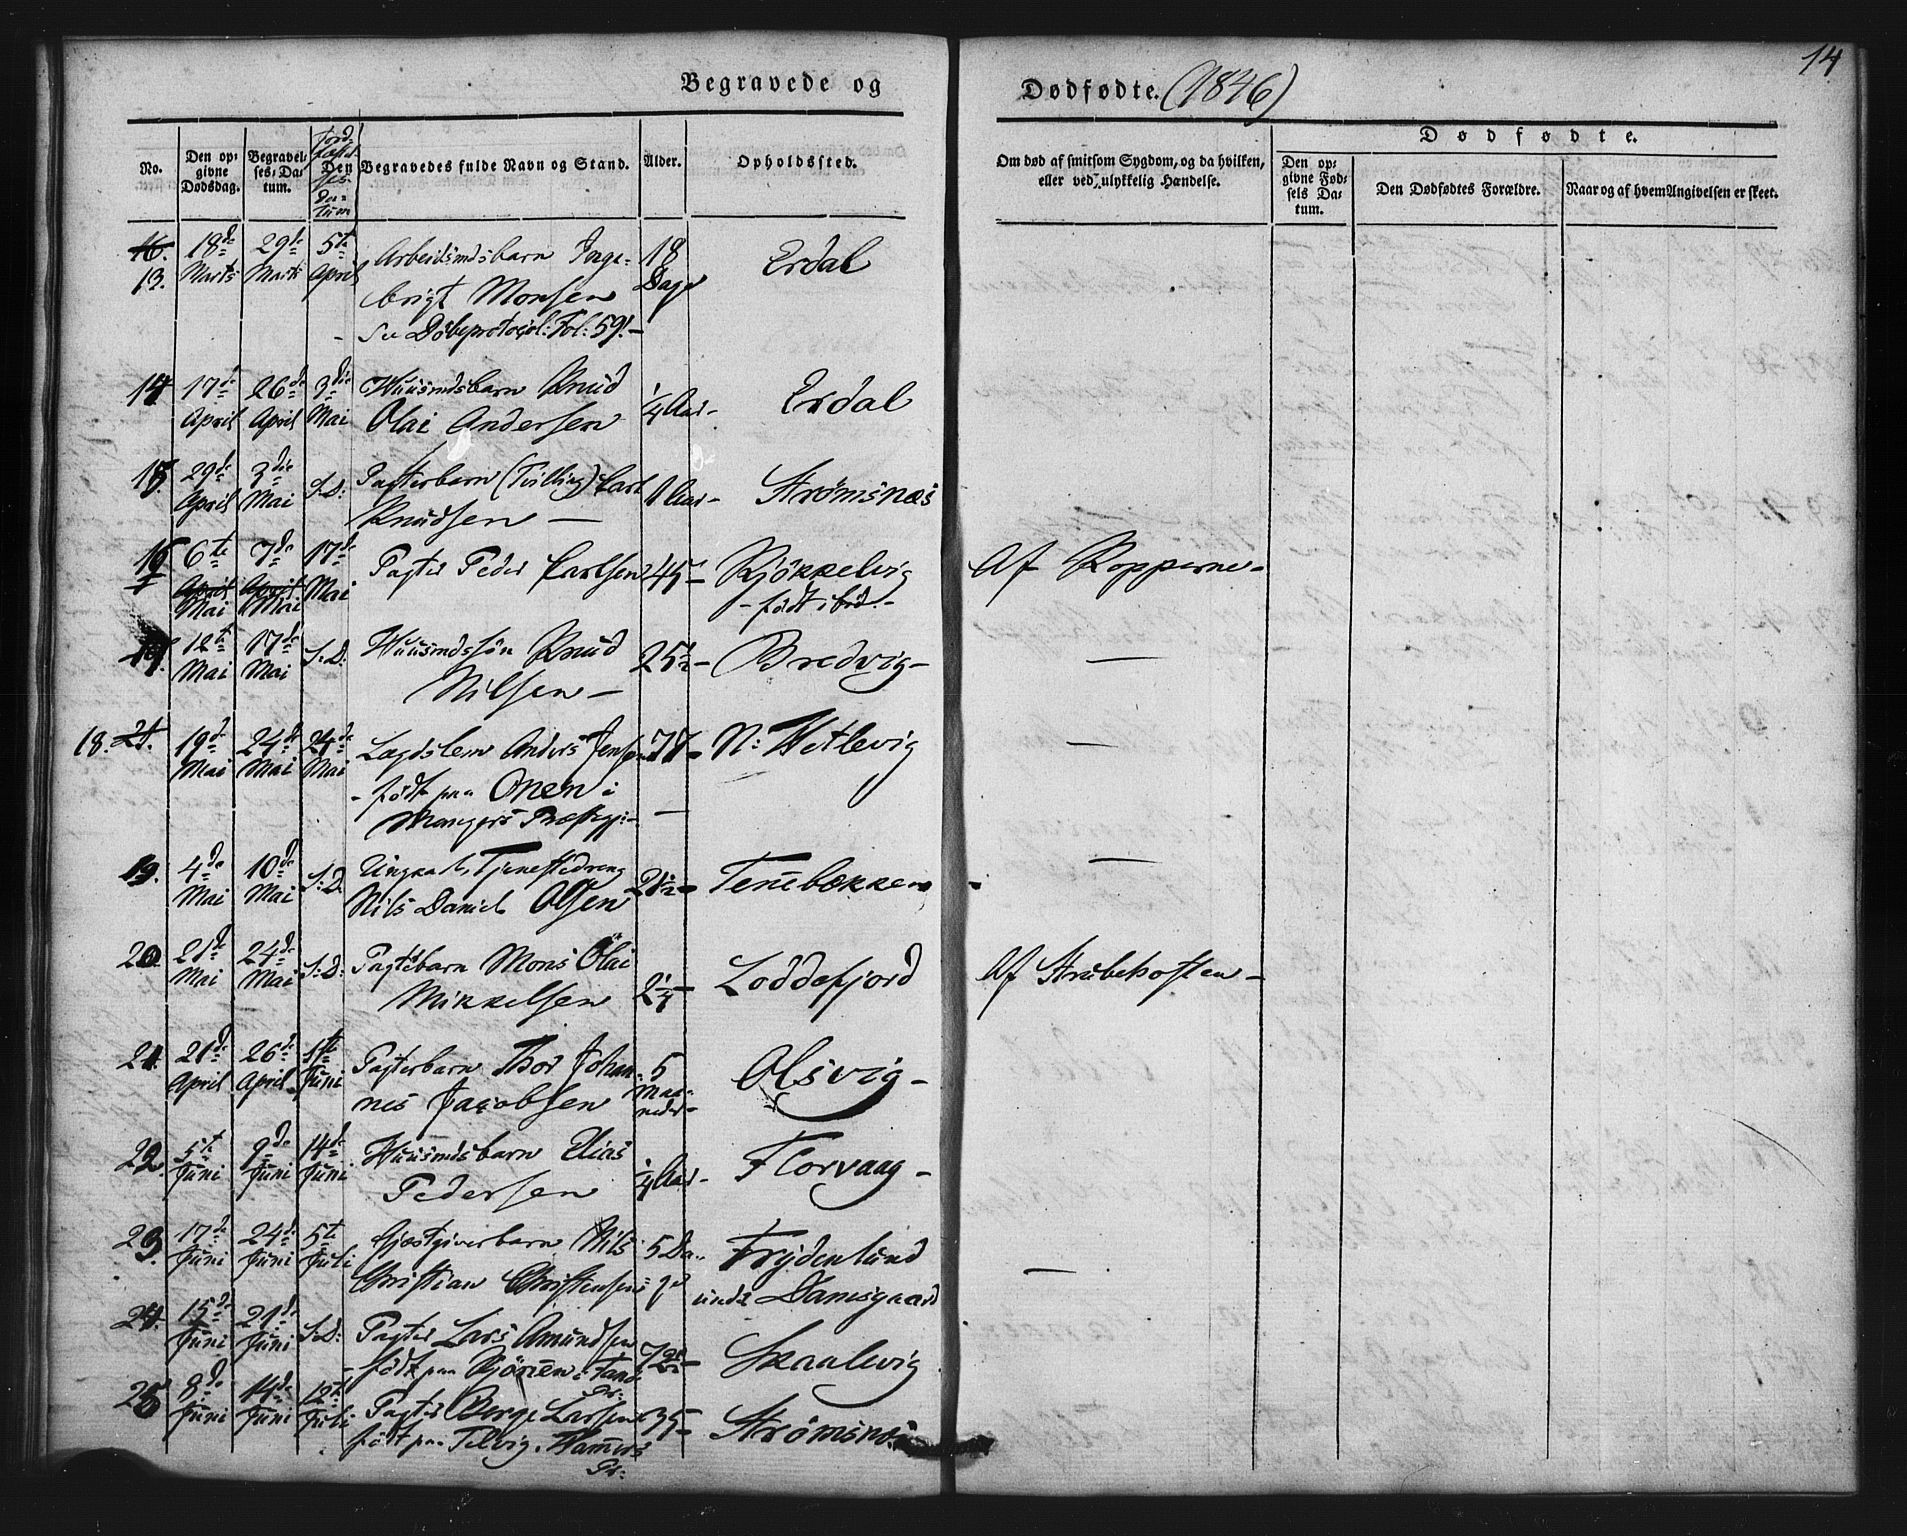 14
Begravede og Dødfødte. (1846)
No.
Den opgivne Dødsdag.
Begravelses-Datum.
Jordfæstelses Datum
Begravedes fulde Navn og Stand.
Alder.
Opholdssted.
Om død af smitsom Sygdom, og da hvilken, eller ved ulykkelig Hændelse.
Dødfødte.
Den opgivne Fødsels Datum.
Den Dødfødtes Forældre.
Naar og af hvem Angivelsen er skeet.
16. 18de 29de 5te Arbeidsmdsbarn Inge- 18 Erdal
13. Marts Marts April brigt Monsen Dage
- Se Døbeprotocol: Fol: 59. -
14 17de 26de 3die Huusmdsbarn Knud 1/4 Aar - Erdal
April April Mai Olai Andersen
15. 29de 3die S: D: Pagterbarn (Tvilling) Carl 1 Aar - Strømsnæs
April Mai Knudsen -
16 6te 7de 17de Pagter Peder Carlsen 45 - Kjøkkelvig Af Kopperne -
April April Mai - født ibid. -
Mai Mai
17. 12te 17de S: D: Huusmdssøn Knud 25 1/2 - Bredvig - -
Mai Mai Nilsen -
18. 21. 19de 24de 24de Lægdslem Anders Jensen 77 - N: Hetlevig -
Mai Mai Mai - født paa Onen i
Mangers Præstegj: -
19. 4de 10de S: D. Ungkarl, Tjenestedreng 21 1/2 - Tennebækken - -
Mai Mai Nils Daniel Olsen
20. 21de 24de S: D: Pagterbarn Mons Olai 2 1/4 - Loddefjord Af Strubehosten -
Mai Mai Mikkelsen
21. 21de 26de 1ste Pagterbarn Thor Johan- 5 Olsvig -
April April Juni nes Jacobsen Maaneder -
22. 5te 9de 14de Huusmdsbarn Elias 1/4 Aar - Florvaag -
Juni Juni Juni Pedersen
23. 17de 24de 5te Gjæstgiverbarn Nils 5 Da- Frydenlund -
Juni Juni Juli Christian Christensen ge under Damsgaard
24. 15de 21de S: D: Pagter Lars Amundsen 72 - Skaalevig
Juni Juni - født paa i Fane
Pr:
25 8de 14de 12te Pagter Børge Larsen 35 - Strømsnæs
Juni Juni Juli født paa Telvig, Hammers
Pr: